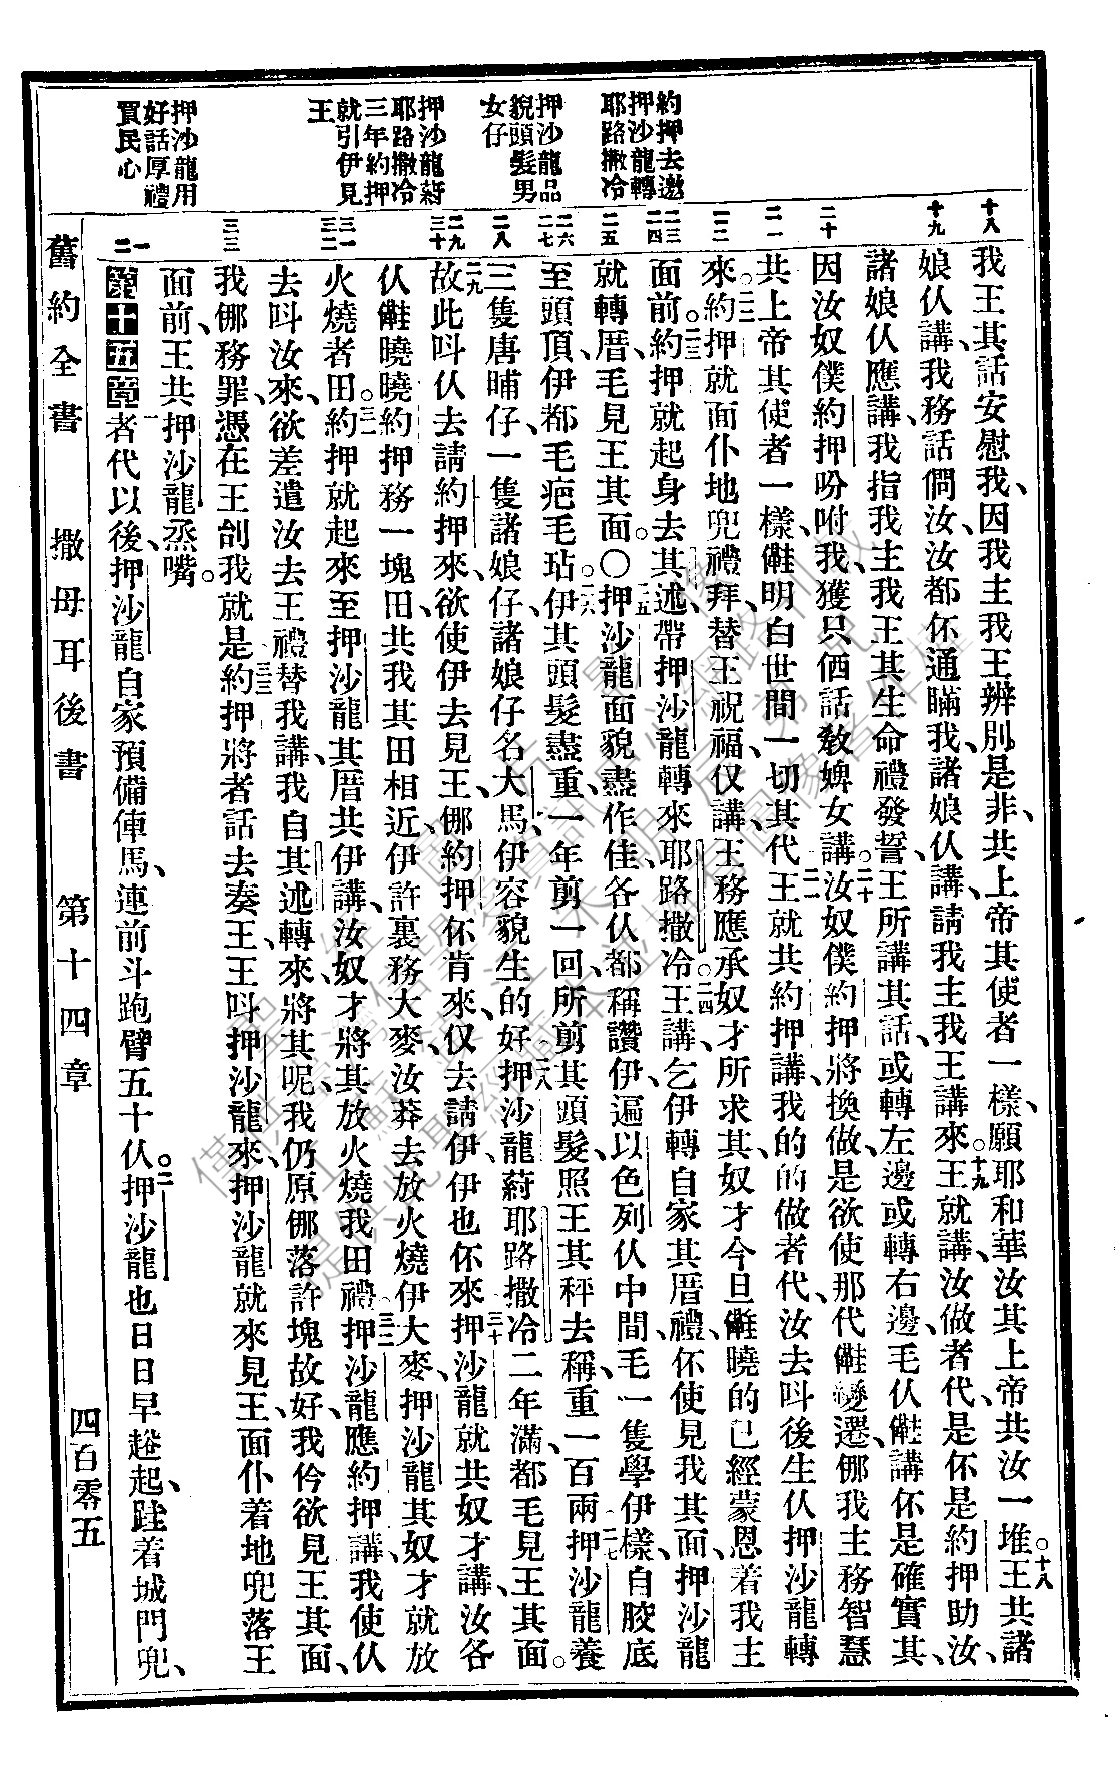 約押去邀
押沙龍轉
耶路撒冷
押沙龍品
貌頭髮男
女仔
押沙龍蒞
耶路撒冷
三年約押
就引伊見
王
押沙龍用
好話厚禮
買民心
十八
十九
二十
二一
二二
二三
二四
二五
二六
二七
二八
二九
三十
三一
三二
三三
一
二
我王其話安慰我、因我主我王辨別是非、共上帝其使者一樣、願耶和華汝其上帝共汝一堆、○十八王共諸
娘仈講、我務話倜汝、汝都伓通瞞我、諸娘仈講、請我主我王講來、○十九王就講、汝做者代、是伓是約押助汝、
諸娘仈應講、我指我主我王其生命禮發誓、王所講其話、或轉左邊或轉右邊、毛仈𠆧講伓是確實其、
因汝奴僕約押吩咐我、獲只佰話教婢女講、○二十汝奴僕約押將換做、是欲使那代𠆧變遷、㑚我主務智慧
共上帝其使者一樣、𠆧明白世間一切其代、○二一王就共約押講、我的的做者代、汝去呌後生仈押沙龍轉
來、○二二約押就面仆地兜禮拜、替王祝福、仅講、王務應承奴才所求其、奴才今旦𠆧曉的已經蒙恩着我主
面前、○二三約押就起身去其述、帶押沙龍轉來耶路撒冷、○二四王講、乞伊轉自家其厝禮、伓使見我其面、押沙龍
就轉厝、毛見王其面。○二五押沙龍面貌盡作佳、各仈都稱讚伊、遍以色列仈中間、毛一隻學伊樣、自骹底
至頭頂、伊都毛疤毛玷、○二六伊其頭髮盡重、一年剪一回、所剪其頭髮、照王其秤去稱、重一百兩、○二七押沙龍養
三隻唐晡仔、一隻諸娘仔、諸娘仔名大馬、伊容貌生的好、○二八押沙龍蒞耶路撒冷二年滿、都毛見王其面。
○二九故此呌仈去請約押來、欲使伊去見王、㑚約押伓肯來、仅去請伊、伊也伓來、○三十押沙龍就共奴才講、汝各
仈𠆧曉曉約押務一塊田、共我其田相近、伊許裏務大麥、汝莽去放火燒伊大麥、押沙龍其奴才就放
火燒者田、○三一約押就起來至押沙龍其厝、共伊講、汝奴才將其放火燒我田禮、○三二押沙龍應約押講、我使仈
去呌汝來、欲差遣汝去王禮、替我講、我自其述轉來、將其呢、我仍原㑚落許塊故好、我仱欲見王其面、
我㑚務罪、憑在王刣我就是、○三三約押將者話去奏王、王呌押沙龍來、押沙龍就來見王、面仆着地兜落王
面前、王共押沙龍烝嘴。
第十五章 一者代以後、押沙龍自家預備俥馬、連前斗跑臂五十仈、○二押沙龍也日日早趂起、跍着城門兜、
舊約全書　撒母耳後書　第十四章　四百零五